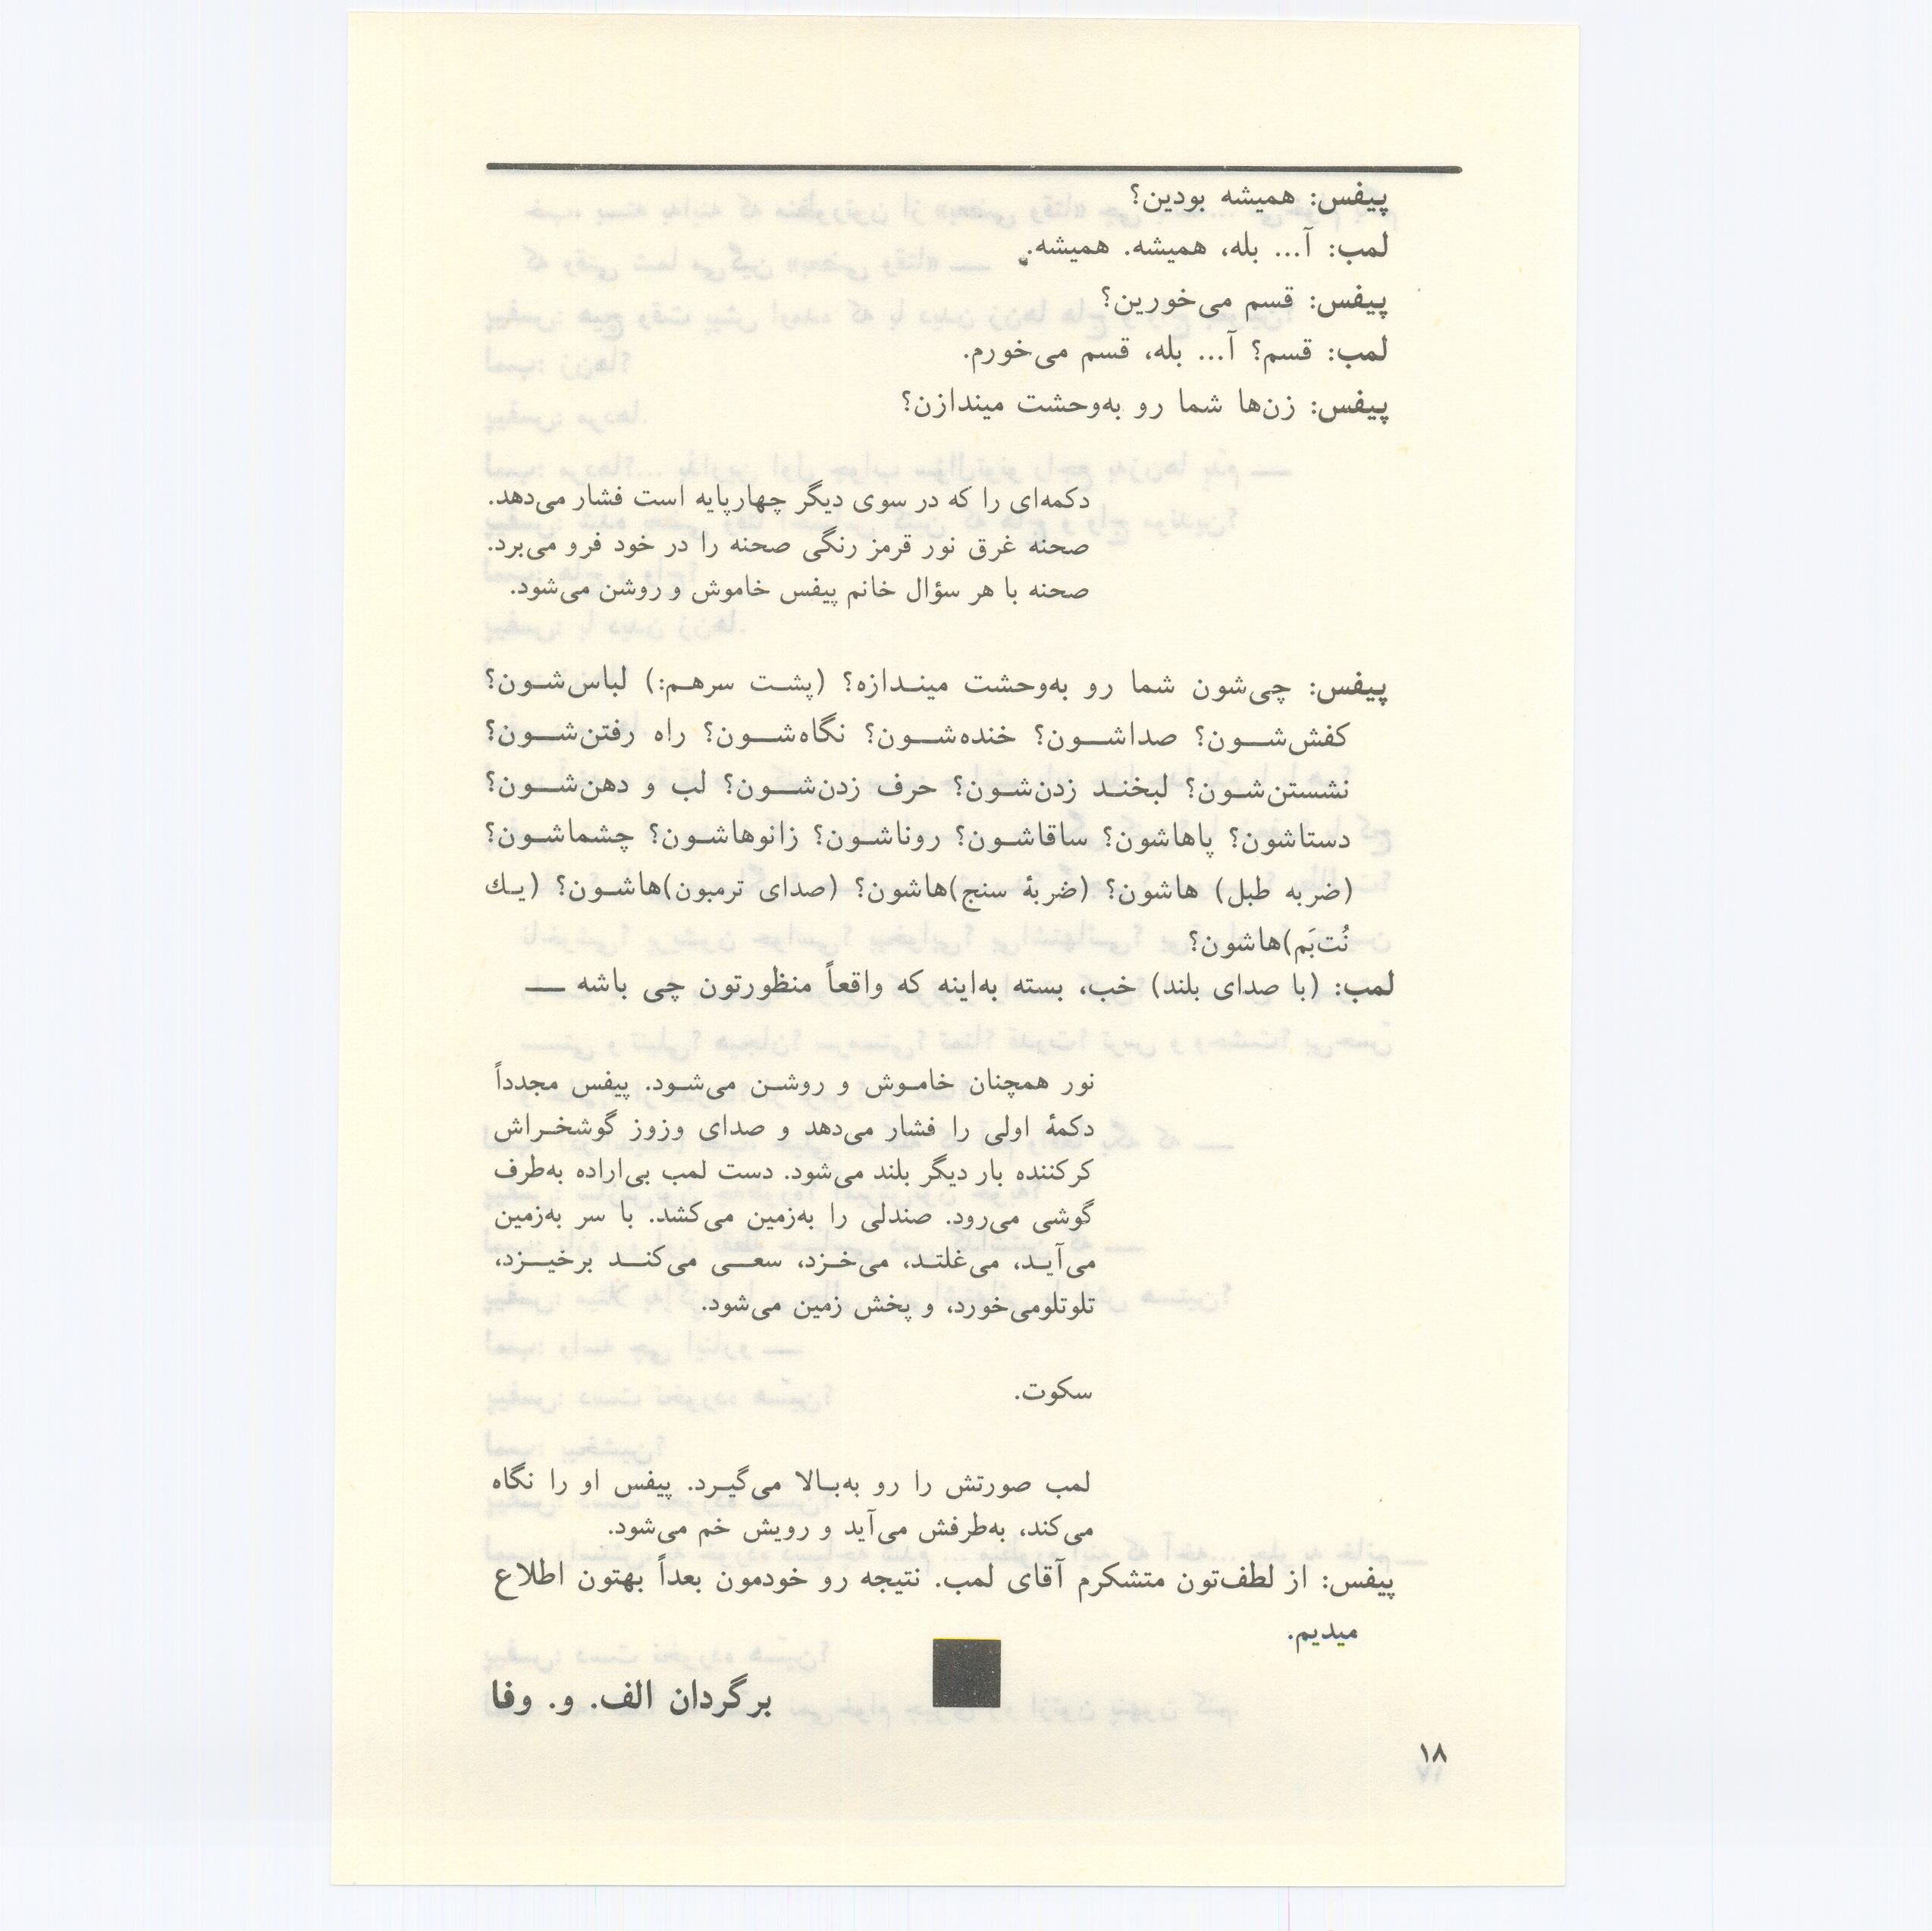 پیفس: همیشه بودین؟
لمب: آ... بله، همیشه. همیشه.
پیفس: قسم می‌خورین؟
لمب: قسم؟ آ... بله، قسم می‌خورم.
پیفس: زن‌ها شما رو به‌وحشت میندازن؟
دکمه‌ای را که در سوی دیگر چهارپایه است فشار می‌دهد.
صحنه غرق نور قرمز رنگی صحنه را در خود فرو می‌برد.
صحنه با هر سؤال خانم پیفس خاموش و روشن می‌شود.
پیفس: چی‌شون شما رو به‌وحشت مینـدازه؟ (پشـت سرهـم:) لباس‌شـون؟
کفش‌شــون؟ صداشــون؟ خنده‌شــون؟ نگاه‌شــون؟ راه رفتن‌شــون؟
نشستن‌شـون؟ لبخنـد زدن‌شـون؟ حرف زدن‌شــون؟ لب و دهن‌شــون؟
دستاشون؟ پاهاشون؟ ساقاشـون؟ روناشـون؟ زانوهاشـون؟ چشماشـون؟
(ضربه طبل) هاشون؟ (ضربهٔ سنج)هاشون؟ (صدای ترمبون)هاشـون؟ (یـك
نُت‌بَم)هاشون؟
لمب: (با صدای بلند) خب، بسته به‌اینه که واقعاً منظورتون چی باشه —
نور همچنان خامـوش و روشـن می‌شـود. پیفس مجدداً
دکمهٔ اولی را فشار می‌دهد و صدای وزوز گوشخـراش
کرکننده بار دیگر بلند می‌شود. دست لمب بی‌اراده به‌طرف
گوشی می‌رود. صندلی را به‌زمین می‌کشد. با سر به‌زمین
می‌آیـد، می‌غلتـد، می‌خـزد، سعــی می‌کنــد برخیــزد،
تلوتلومی‌خورد، و پخش زمین می‌شود.
سکوت.
لمب صورتش را رو به‌بـالا می‌گیـرد. پیفس او را نگاه
می‌کند، به‌طرفش می‌آید و رویش خم می‌شود.
پیفس: از لطف‌تون متشکرم آقای لمب. نتیجه رو خودمون بعداً بهتون اطلاع
میدیم.
برگردان الف. و. وفا
۱۸